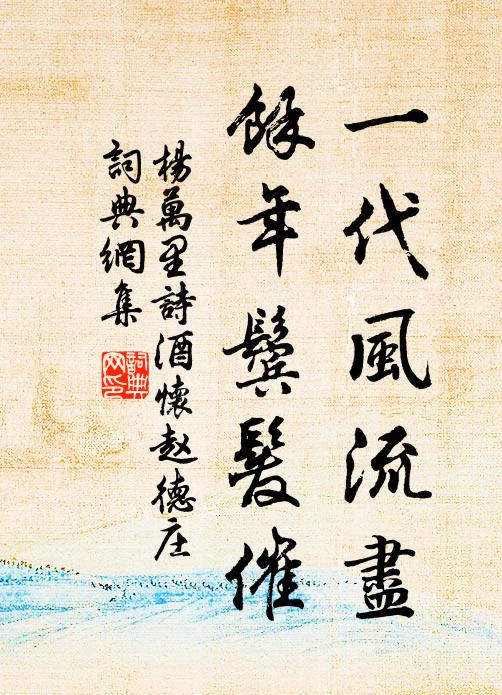 一代風流盡
餘年鬢髮催
楊萬里詩酒懷赵德庄
詞典網集
詞典
网印